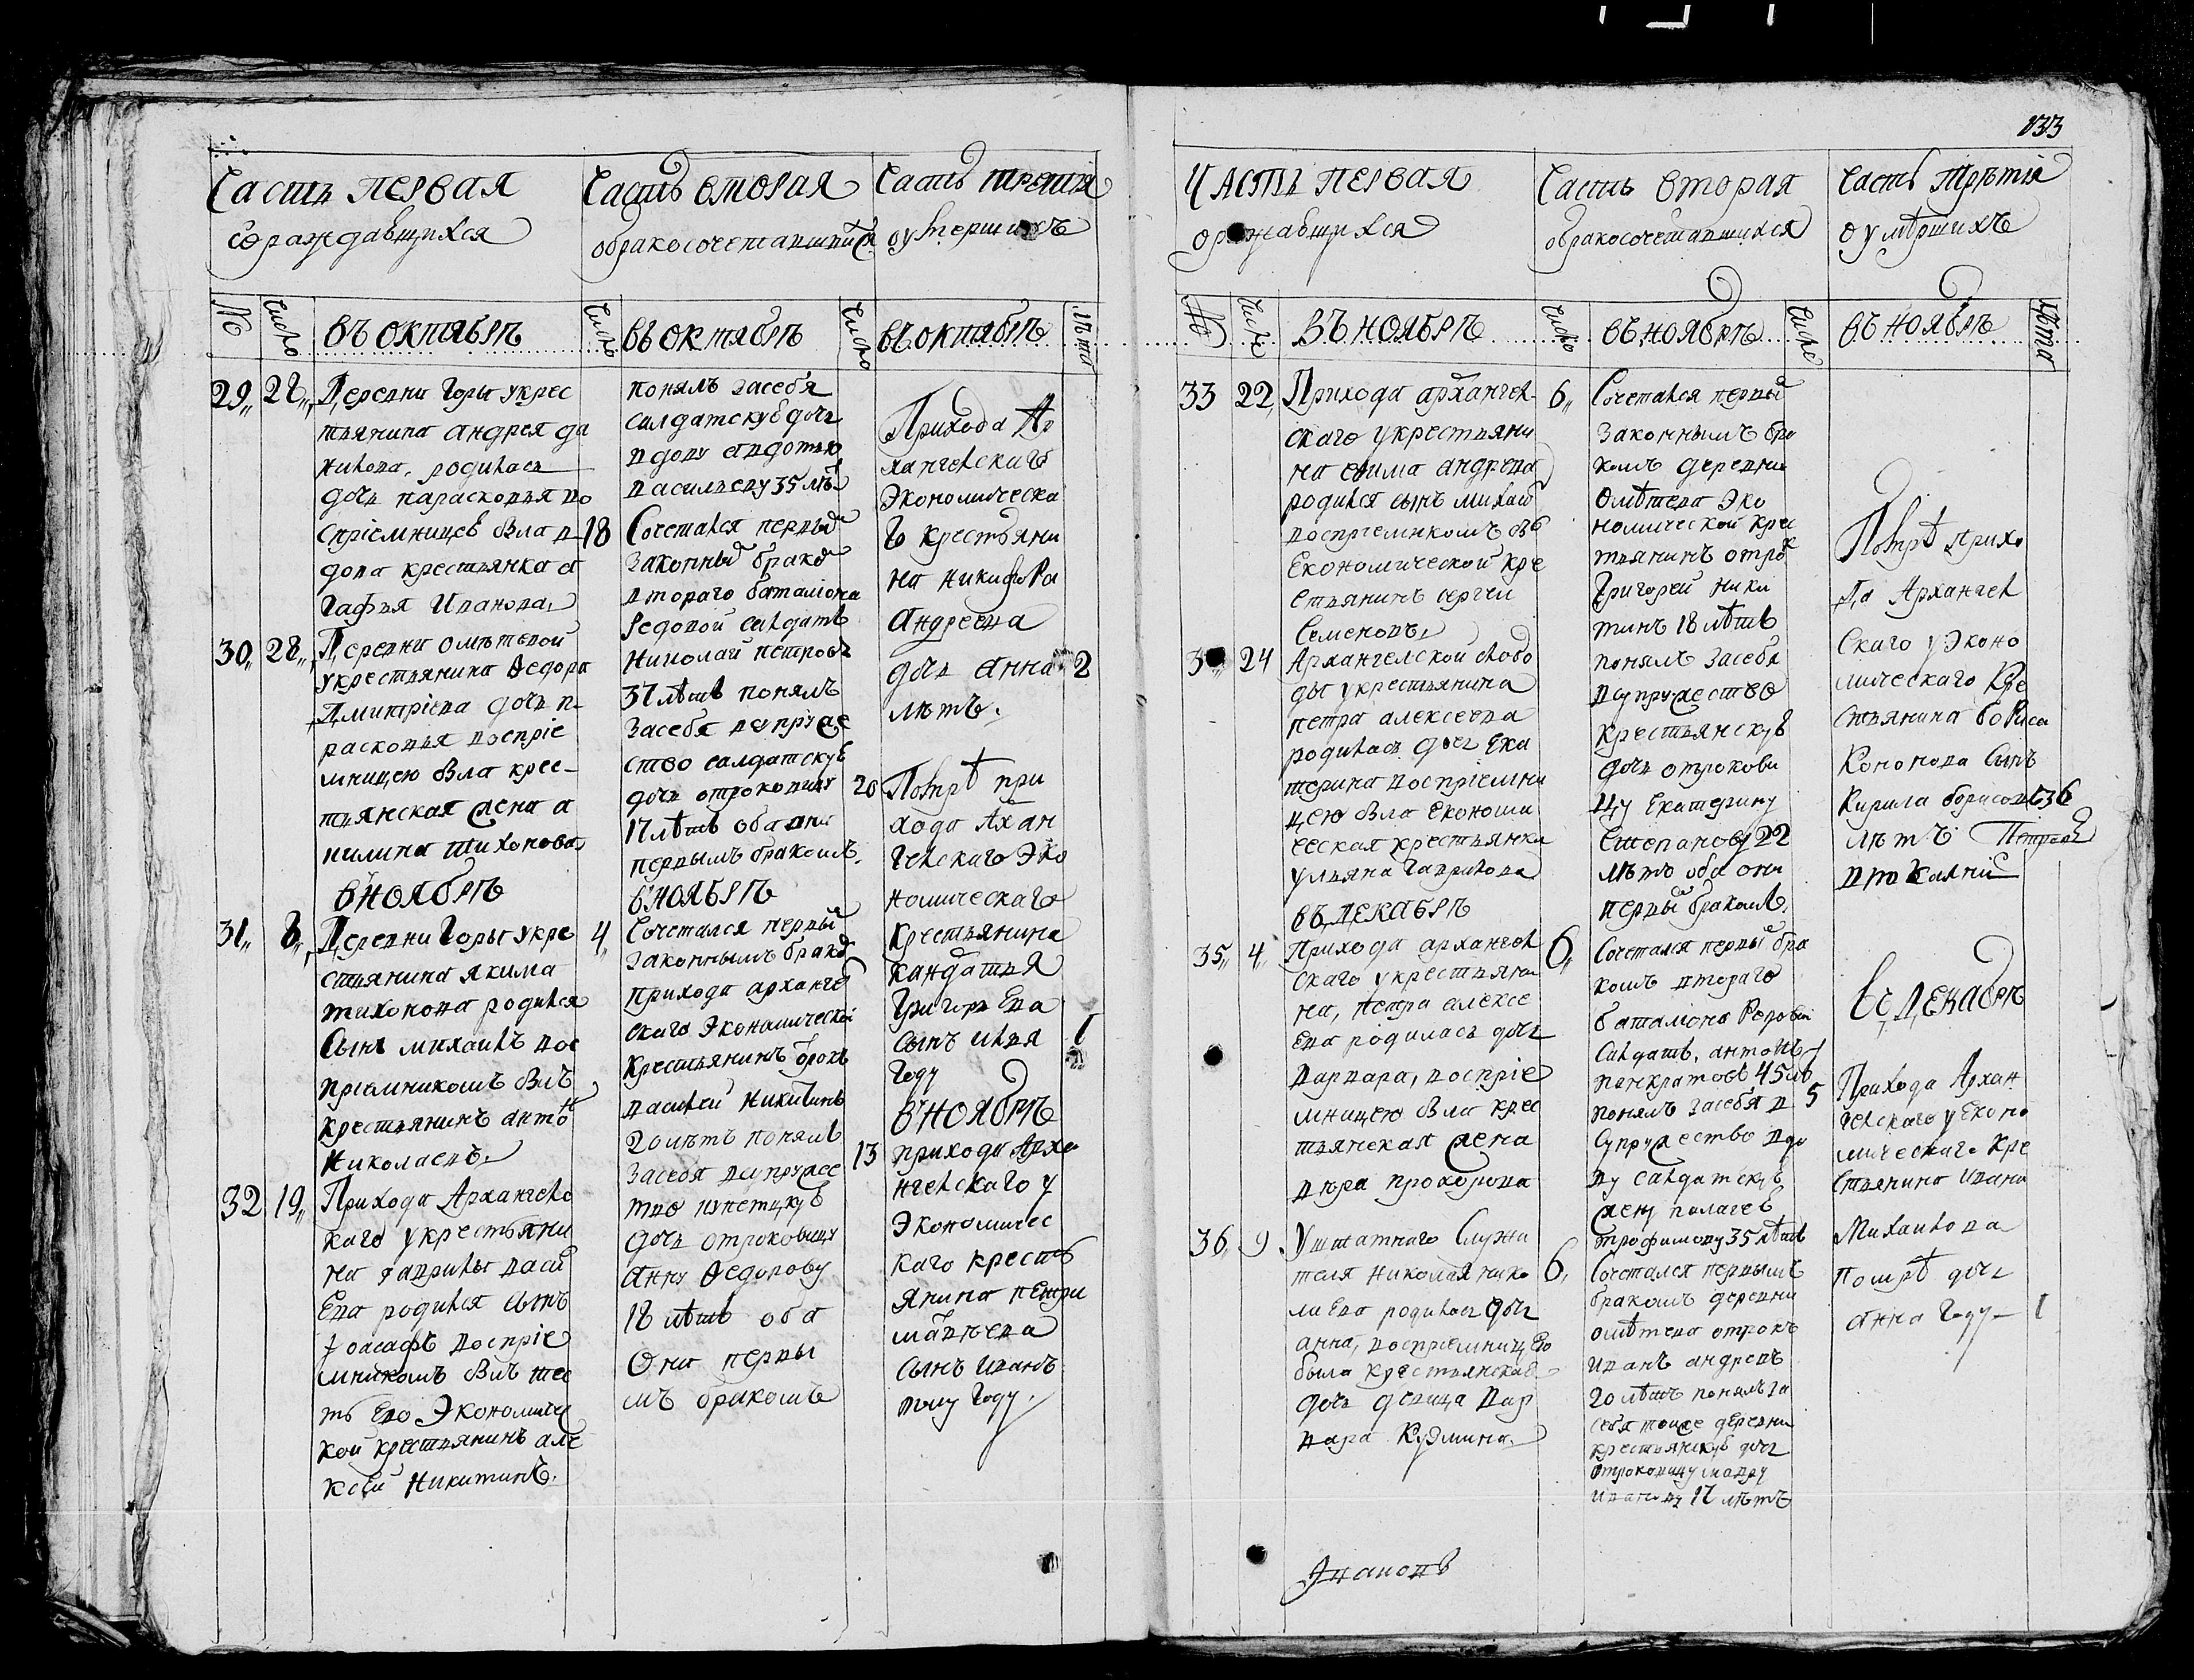 133
Часть первая
о раждавшихся
№
Число
въ октябрѣ
29
28
Деревни Горы у крес
тьянина андрея да
нилова, родилась
дочь парасковья во
спріемницей была в
дова крестьянка а
гафья Иванова,
30
28
Деревни омѣтевой
у крестьянина Ѳедора
Дмитріева дочь п
расковья воспріе
мницею была крес-
тьянская жена а
нилина тихонова,
в ноябрѣ
31
8
Деревни Горы у кре
стьянина якима
тихонова родился
Сынъ михаилъ вос
пріемникомъ былъ
крестьянинъ антон
Николаевъ.
32
19
Прихода Архангелс
каго у крестьяни
на гаврилы васи
Ева родился сынъ
Іоасафъ воспріе
мникомъ былъ тес
ть Ево Экономиче
кой крестьянинъ але
ксей Никитинъ.
Часть вторая
о бракосочетавшихся
Число
въ октябрѣ
понялъ засебя
салдатскую дочь
вдову авдотью
васильеву 35 лѣт
18
Сочетался первым
Законным браком
втораго баталіона
Редовой салдатъ
Николай петровъ
37 лѣтъ понялъ
Засебя в супруже
ство салдатскую
дочь отроковицу
17 лѣтъ оба они
первымъ бракомъ.
в ноябрѣ
4
Сочетался первым
законнымъ браком
прихода арханге
скаго Экономической
Крестьянинъ отрок
василей Никитинъ
20 лѣтъ понялъ
Засебя в супружес
тво купетцкую
дочь отроковицу
Анну Ѳедорову
18 лѣтъ оба
Они первы
мъ бракомъ
Часть третья
о умершихъ
Число
въ октябрѣ
лѣта
Прихода Ар
хангелскаго
Экономическа
го крестьяни
на никифора
Андреева
дочь анна 2
лѣтъ.
20
Помрѣ при
хода Ахан
гелскаго Эко
номическаго
крестьянина
кандатья
Григорьева
сынъ илья 1
году
в ноябрѣ
13
прихода Арха
нгелскаго у
Экономичес
каго кресть
янина петра
матвеева
сынъ иванъ
полу году.
Часть первая
о рожавшихся
№
Число
въ ноябрѣ
33
22
Прихода архангел-
скаго у крестьяни
на ефима андреева
родился сынъ михаил
воспріемникомъ былъ
Економической кре
стьянинъ сергей
Семеновъ,
24
Архангелской слобо
ды у крестьянина
петра алексеева
родилась дочь Ека
терина воспріемни
цею была Економи
ческая крестьянка
ульяна гаврилова
въ декабрѣ
35
4
Прихода архангел
скаго у крестьяни
на, петра алексе
ева родилась дочь
варвара, воспріе
мницею была крес
тьянская жена
вера прохорова
36
9
У штатнаго Служи
теля Николая нико
лаева родилась дочь
анна, воспріемницею
была крестьянская
дочь девица вар
вара Кузмина.
Часть вторая
о бракосочетавшихся
Число
въ ноябрѣ
6
Сочетался первый
Законнымъ бра
комъ деревни
Омѣтева Эко
номической крес
тьянинъ отрок
Григорей ники
тинъ 18 лѣтъ
понялъ засебя
в супружество
крестьянскую
дочь отрокови
цу Екатерину
Степанову 22
лѣтъ оба они
первым бракомъ.
6
Сочетался первый бра
комъ втораго
баталіона Рядовой
Салдатъ, антонъ
панкратовъ 45 лѣ
понялъ засебя в
Супружество вдо
ву салдатскую
жену палагею
трофимову 35 лѣтъ
6
Сочетался первымъ
бракомъ деревни
омѣтева отрокъ
иванъ андревъ
20 лѣтъ понялъ за
себя тоиже деревни
крестьянскую дочь
отроковицу мавру
иванову 17 лѣтъ
Часть третія
о умѣршихъ
Число
въ ноябрѣ
лѣта
Помрѣ прихо
да Архангел
скаго у Эконо
мическаго Кре
стьянина бориса
Кононова Сынъ
Кирила борисовъ 36
лѣтъ
Въ Декабрѣ
5
Прихода Архан
гелскаго у Еконо
мическаго кре
стьянина ивана
Михаилова
помрѣ дочь
анна году - 1
Ивановъ